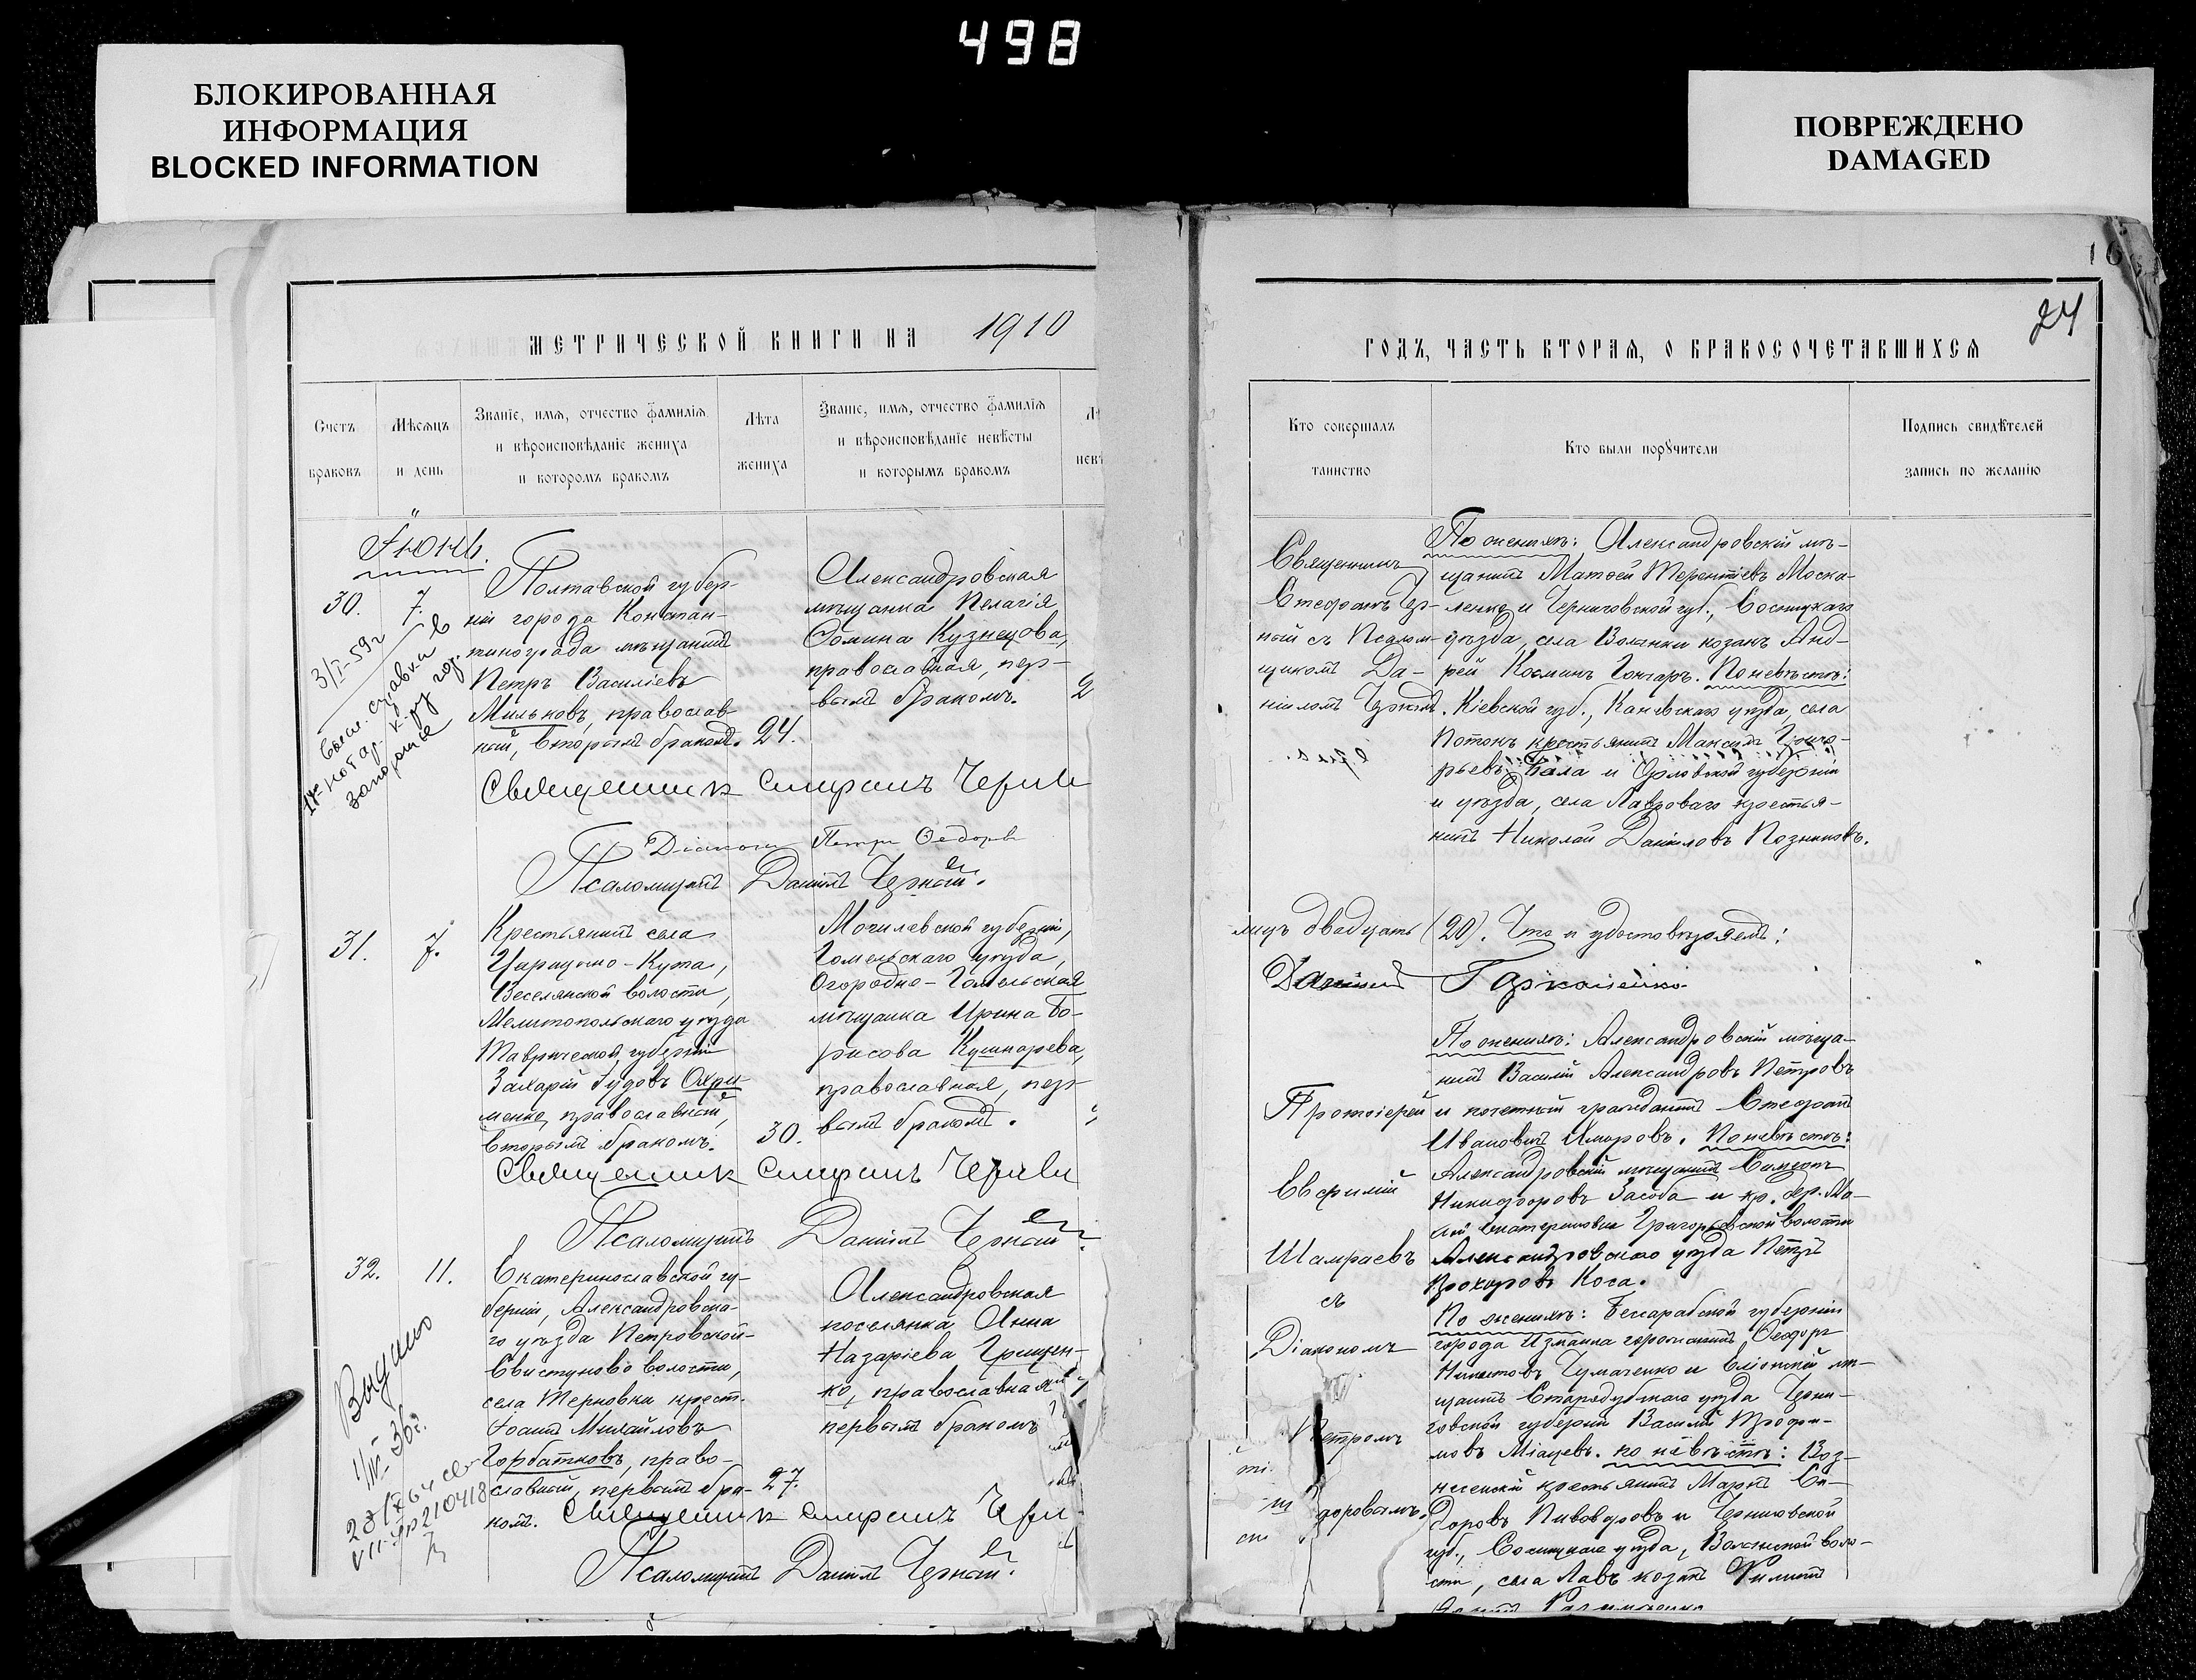 498
БЛОКИРОВАННАЯ
ИНФОРМАЦИЯ
BLOCKED INFORMATION
ПОВРЕЖДЕНО
DAMAGED
16
24
МЕТРИЧЕСКОЙ КНИГИ НА 1910
Счетъ браковъ
Мѣсяцъ и день
Званіе, имя, отчество фамилія
и вѣроисповѣданіе жениха
и которомъ бракомъ
Лѣта
жениха
Званіе, имя, отчество фамилія
и вѣроисповѣданіе невѣсты
и которымъ бракомъ
Іюнь.
30.
7.
Полтавской губер-
ніи города Констан-
тинограда мѣщанинъ
Петръ Василіевъ
Мильковъ, православ-
ный, вторымъ бракомъ.
24.
Александровская
мѣщанка Пелагія
Ѳомина Кузнецова,
православная, пер-
вымъ бракомъ.
2
3/I-59г
Священник
Діаконъ Петръ Ѳедоро
Псаломщикъ Даніилъ Черный.
31.
7.
Крестьянинъ села
Царицыно-Кута,
Веселянской волости,
Мелитопольскаго уѣзда
Таврической губерніи
Захарій Іудовъ Охри-
менко, православный,
вторымъ бракомъ.
30.
Могилевской губерніи,
Гомельскаго уѣзда,
Огородно-Гомельская
мѣщанка Ирина Бо-
рисова Кушнарева,
православная, пер-
вымъ бракомъ.
Священник
Псаломщикъ Даніилъ Черный.
32.
11.
Екатеринославской гу-
берніи, Александровска-
го уѣзда Петровской-
Свистуново волости,
села Терновки крест.
Іоаннъ Михайловъ
Горбатковъ, право-
славный, первымъ бра-
комъ.
27.
Александровская
поселянка Анна
Назаріева Грищен-
ко, православная
первымъ бракомъ
Выдано
1/IV-36г.
Священник
Псаломщикъ Даніилъ Черный.
ГОДЪ, ЧАСТЬ ВТОРАЯ, О БРАКОСОЧЕТАВШИХСЯ
Кто совершалъ
таинство
Кто были поручители
Подпись свидѣтелей
запись по желанію
Священникъ
Стефанъ Чер-
ный съ Псалом-
щикомъ Да-
ніиломъ Чернымъ.
По женихѣ: Александровскій мѣ-
щанинъ Матѳей Терентіевъ Моска-
ленко и Черниговской губ., Сосницкаго
уѣзда, села Волынки козакъ Анд-
рей Косминъ Гончаръ. По невѣстѣ:
Кіевской губ., Каневскаго уѣзда, села
Потокъ крестьянинъ Максимъ Григо-
рьевъ и Орловской губерніи
и уѣзда, села Лавроваго крестья-
нинъ Николай Даніиловъ Позняковъ.
лицъ двадцать (20). Что и удостовѣряемъ:
Протоіерей
Евфимій
Шамраевъ
съ
Діакономъ
Петромъ
доровымъ.
По женихѣ: Александровскій мѣща-
нинъ Василій Александровъ Петровъ
и почетный гражданинъ Стефанъ
Ивановичъ Яморовъ. По невѣстѣ:
Александровскій мѣщанинъ Самсонъ
Никифоровъ Засоба и кр. дер. Ма-
лой Екатериновки Григорьевской волости
Александровскаго уѣзда Петръ
Прохоровъ Коса.
По женихѣ: Бессарабской губерніи
города Измаила горожанинъ Ѳеодоръ
Никитовъ Чумаченко и мѣ-
щанинъ Стародубскаго уѣзда Черни-
говской губерніи Василій Трофи-
мовъ Міацевъ. по невѣстѣ: Воз-
несенскій крестьянинъ Маркъ Си-
доровъ Пивоваровъ и Черниговской
губ., Сосницкаго уѣзда, Волынской воло-
сти, села Лавъ козакъ Филиппъ